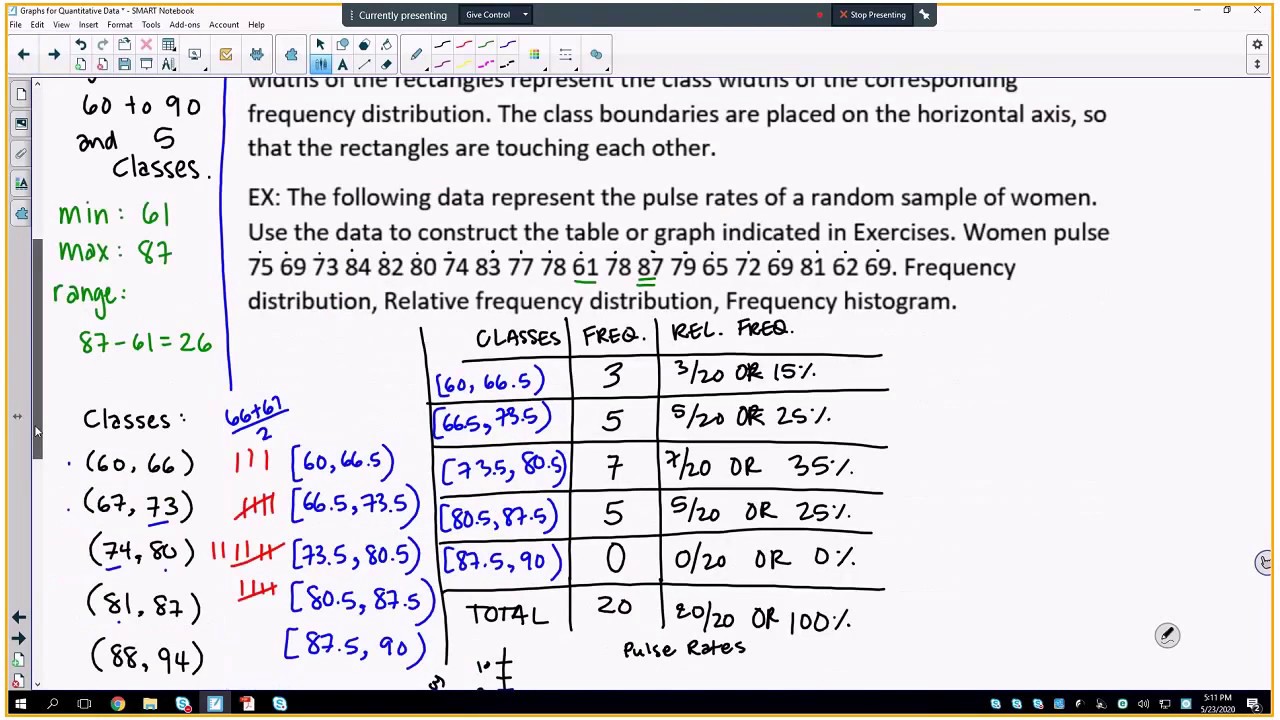 Graphs for Quantitative Data * - SMART Notebook
Currently presenting
Give Control
Stop Presenting
File Edit View Insert Format Tools Add-ons Account Help
widths of the rectangles represent the class widths of the corresponding
frequency distribution. The class boundaries are placed on the horizontal axis, so
that the rectangles are touching each other.
60 to 90
and 5
Classes.
min: 61
max: 87
range:
87-61=26
EX: The following data represent the pulse rates of a random sample of women.
Use the data to construct the table or graph indicated in Exercises. Women pulse
75 69 73 84 82 80 74 83 77 78 61 78 87 79 65 72 69 81 62 69. Frequency
distribution, Relative frequency distribution, Frequency histogram.
CLASSES FREQ. REL. FREQ.
[60, 66.5) 3 3/20 OR 15%
[66.5, 73.5) 5 5/20 OR 25%
[73.5, 80.5) 7 7/20 OR 35%
[80.5, 87.5) 5 5/20 OR 25%
[87.5, 90) 0 0/20 OR 0%
TOTAL 20 20/20 OR 100%
Classes:
66+67
2
(60, 66) [60, 66.5)
(67, 73) [66.5, 73.5)
(74, 80) [73.5, 80.5)
(81, 87) [80.5, 87.5)
(88, 94) [87.5, 90)
Pulse Rates
10
5:11 PM
5/23/2020